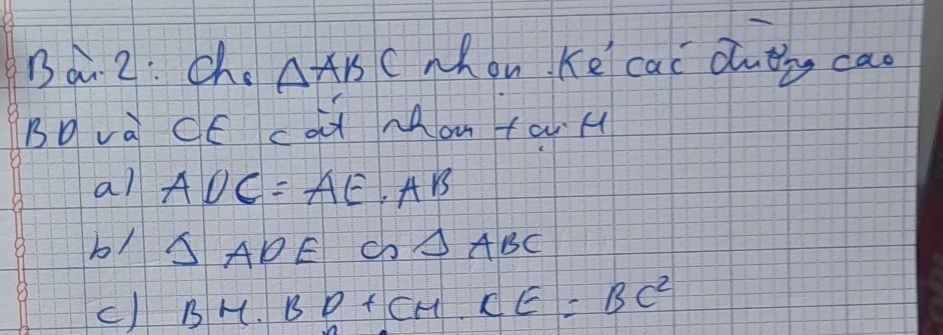 Bài 2: Cho ΔABC nhọn. Kẻ các đường cao
BD và CE cắt nhau tại H
a) ADC = AE. AB
b/ Δ ADE ∽ Δ ABC
c) BH. BD + CH. CE = BC²